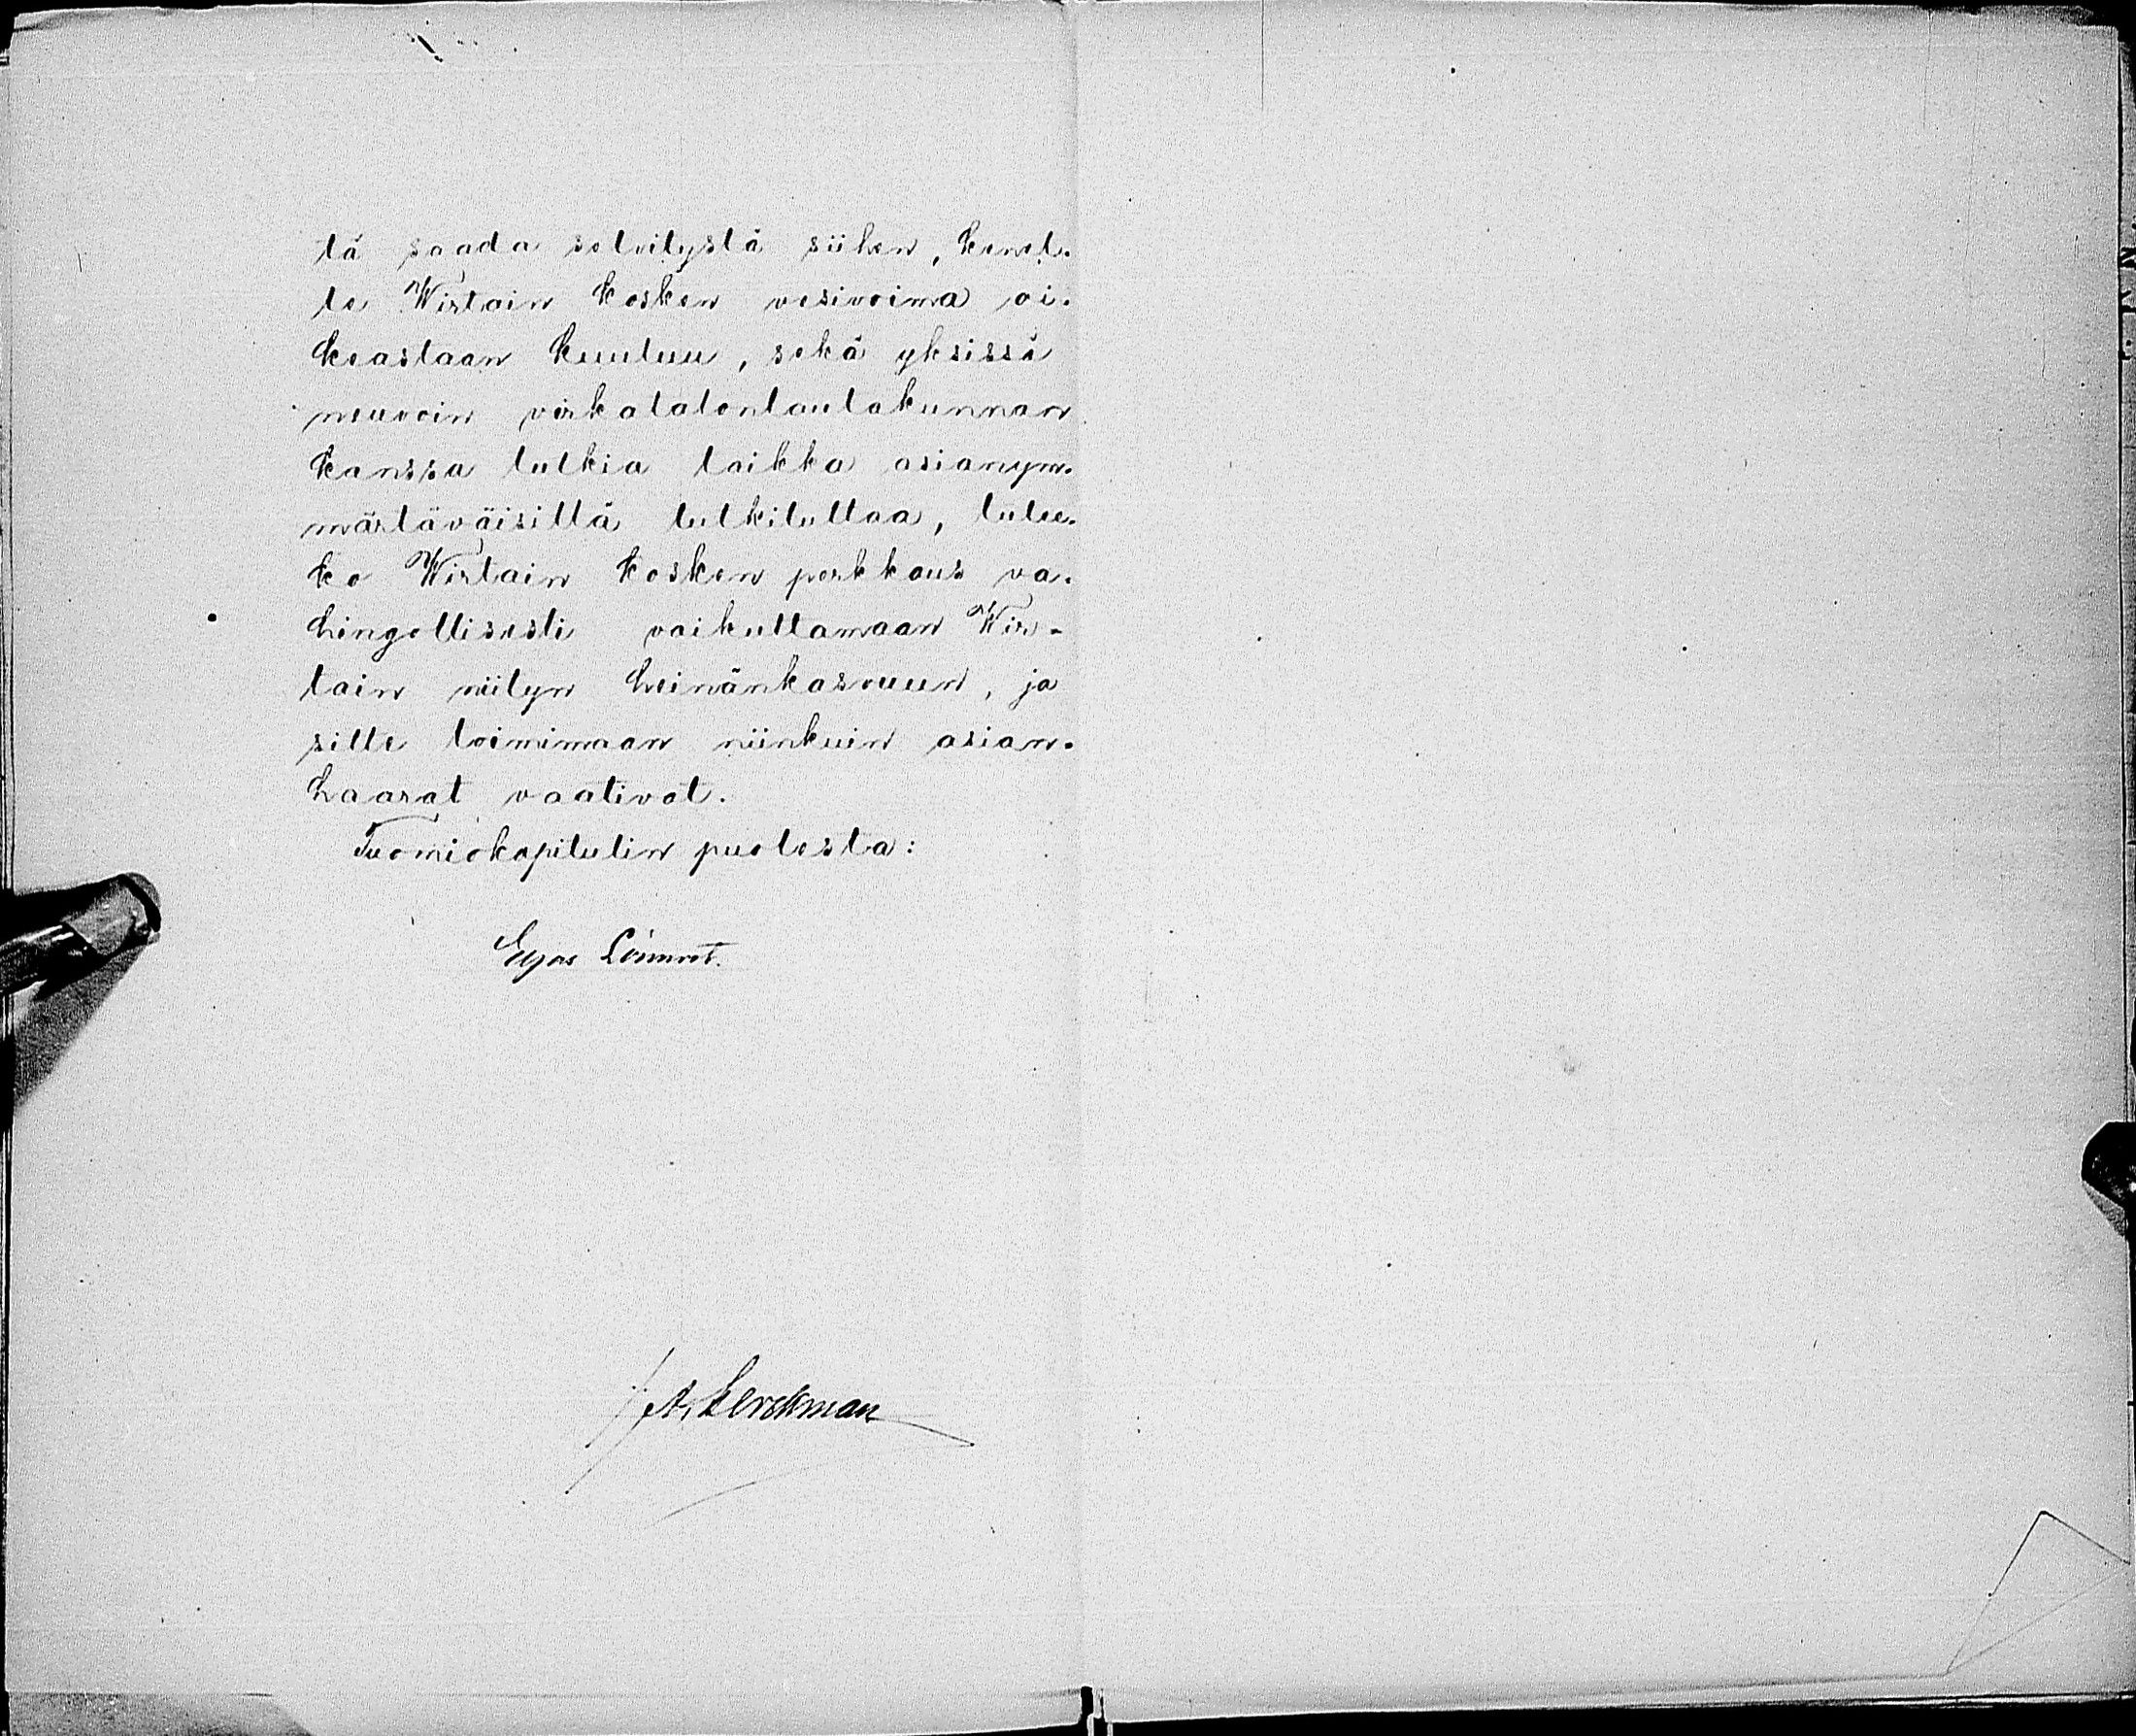 tä saada selvitystä siihen, kenel-
le Wirtain kosken vesivoima oi-
keastaan kuuluu, sekä yksissä
neuvoin virkatalonlautakunnan
kanssa tutkia taikka asianym-
märtäväisillä tutkituttaa, tulee-
ko Wirtain kosken perkkaus va-
hingollisesti vaikuttamaan Wir-
tain niityn heinänkasvuun, ja
sille toimimaan niinkuin asian-
haarat vaativat.
Tuomiokapitulin puolesta:
Eljas Lönnrot.